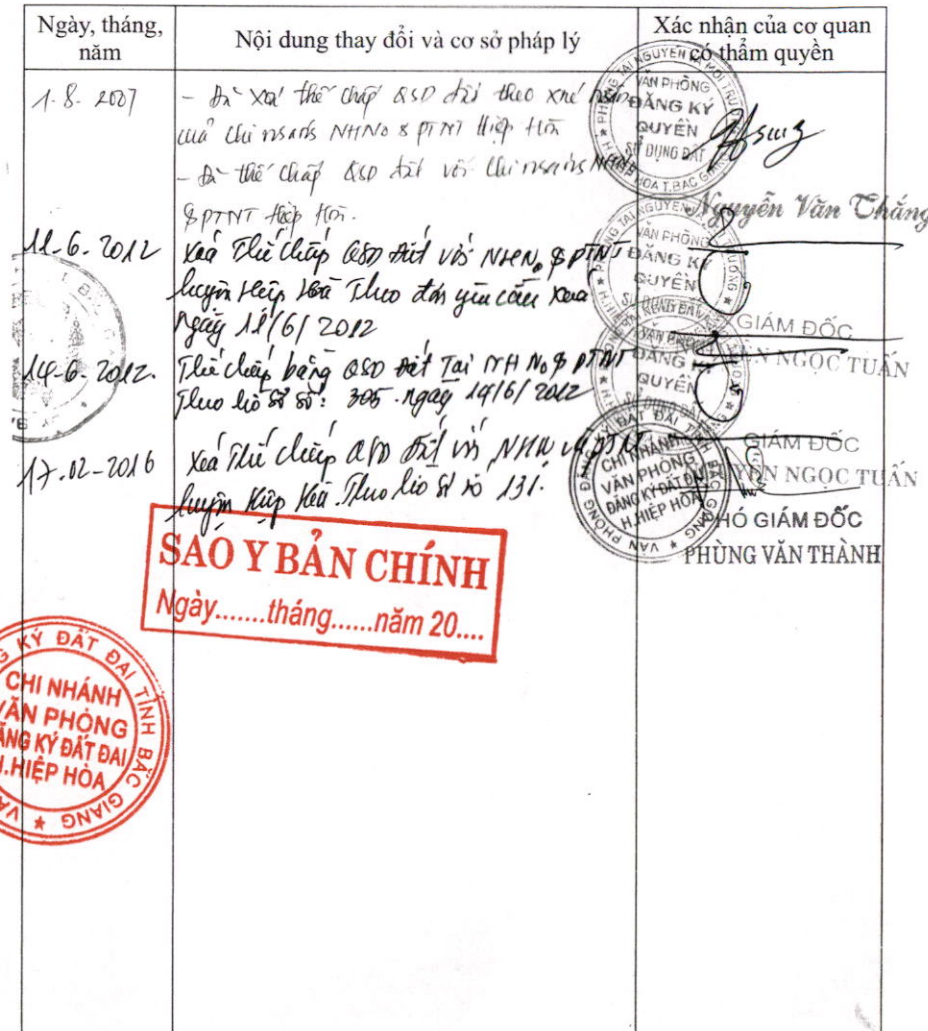 Ngày, tháng, năm
Nội dung thay đổi và cơ sở pháp lý
Xác nhận của cơ quan có thẩm quyền
1.8.2007
- Đã xoá thế chấp QSD đất theo xné
của Chi nhánh NHNo & PTNT Hiệp Hoà
- Đã thế chấp QSD đất với Chi nhánh NHNo
& PTNT Hiệp Hoà.
VĂN PHÒNG
ĐĂNG KÝ
QUYỀN
SỬ DỤNG ĐẤT
Nguyễn Văn Thắng
11.6.2012
Xoá Thế chấp QSD đất với NHNo & PTNT
huyện Hiệp Hoà Theo đơn yêu cầu xoá
Ngày 11/6/2012
VĂN PHÒNG
ĐĂNG KÝ
QUYỀN
GIÁM ĐỐC
NGỌC TUẤN
14-6-2012.
Thế chấp bằng QSD đất Tại NH No & PTNT
Theo hồ sơ số: 305 ngày 14/6/2012
ĐĂNG
QUYỀN
GIÁM ĐỐC
NGỌC TUẤN
17.02-2016
Xoá Thế chấp QSD đất với NHNo và PTNT
huyện Hiệp Hoà. Theo hồ sơ số 131.
CHI NHÁNH
VĂN PHÒNG
ĐĂNG KÝ ĐẤT ĐAI
H.HIỆP HÒA
PHÓ GIÁM ĐỐC
PHÙNG VĂN THÀNH
SAO Y BẢN CHÍNH
Ngày.......tháng......năm 20....
KÝ ĐẤT ĐAI TỈNH BẮC GIANG ★
CHI NHÁNH
VĂN PHÒNG
ĐĂNG KÝ ĐẤT ĐAI
H.HIỆP HÒA